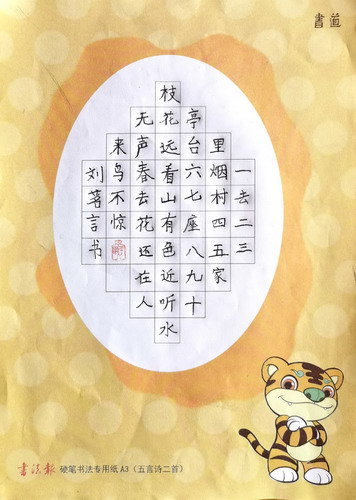 書道
一去二三
里烟村四五家
亭台六七座八九十
枝花远看山有色近听水
无声春去花还在人
来鸟不惊
刘茗言书
书法报 硬笔书法专用纸A3（五言诗二首）